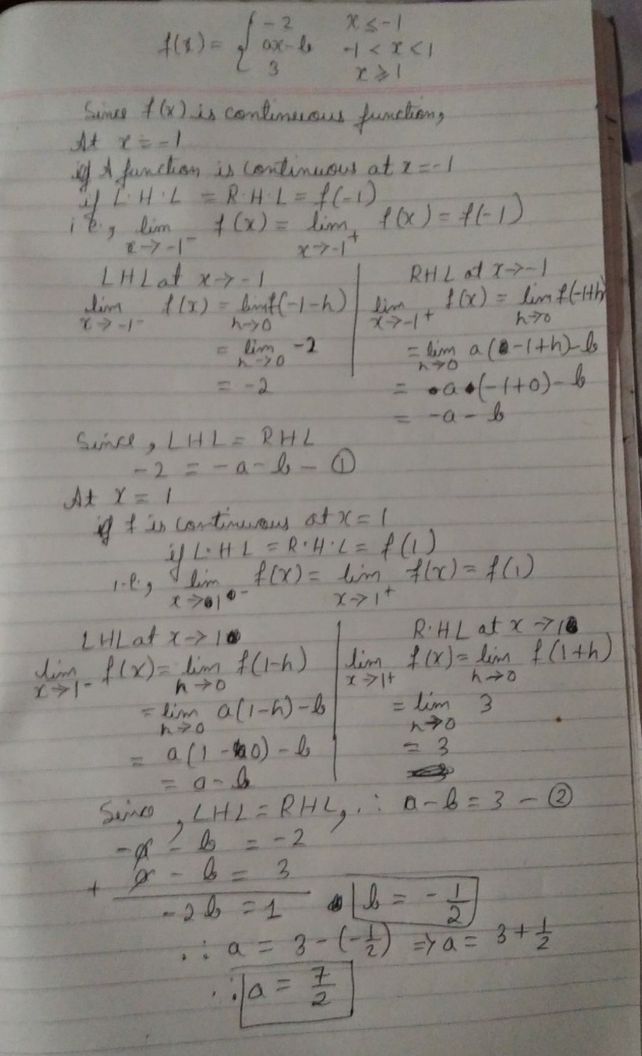 f(x) = { -2 x ≤ -1
ax-b -1 < x < 1
3 x ≥ 1
Since f(x) is continuous function,
At x = -1
if A function is continuous at x = -1
if L.H.L = R.H.L = f(-1)
i.e., lim x→-1⁻ f(x) = lim x→-1⁺ f(x) = f(-1)
LHL at x → -1
lim x→-1⁻ f(x) = lim h→0 f(-1-h)
= lim h→0 -2
= -2
RHL at x → -1
lim x→-1⁺ f(x) = lim h→0 f(-1+h)
= lim h→0 a(-1+h)-b
= a(-1+0)-b
= -a-b
Since, LHL = RHL
-2 = -a-b - ①
At x = 1
if f is continuous at x = 1
if L.H.L = R.H.L = f(1)
i.e., lim x→1⁻ f(x) = lim x→1⁺ f(x) = f(1)
LHL at x → 1
lim x→1⁻ f(x) = lim h→0 f(1-h)
= lim h→0 a(1-h)-b
= a(1-0)-b
= a-b
R.H.L at x → 1
lim x→1⁺ f(x) = lim h→0 f(1+h)
= lim h→0 3
= 3
Since, LHL = RHL, ∴ a-b = 3 - ②
-a - b = -2
+ a - b = 3
-2b = 1 b = -1/2
∴ a = 3-(-1/2) ⇒ a = 3+1/2
∴ a = 7/2